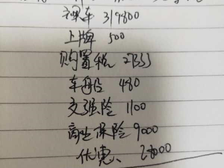 裸车 319800
上牌 500
购置税
车船 480
交强险 1100
商业保险 9000
优惠